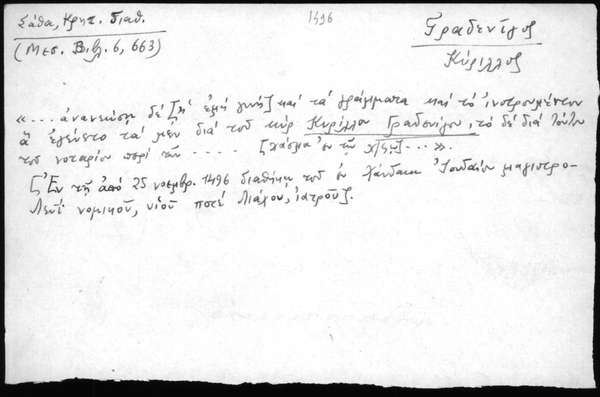 Σάθα, Κρητ. διαθ.
(Μεσ. Βιβλ. 6, 663)
1496
Γραδενίγος
Κύριλλος
«... ἀνανεώση δέ [ἡ ἐμή γυνή] καί τά γράμματα καί τό ἰνστρουμέντον
ἅ ἐγένετο τά μέν διά τοῦ κύρ Κυρίλλου Γραδενίγου, τό δέ διά τούτου
τοῦ νοταρίου περί τῶν ..... [χάσμα ἐν τῷ χ]...».
[Ἐν τῇ ἀπό 25 νοεμβρ. 1496 διαθήκῃ τοῦ ἐν Χάνδακι Ἰουδαίου μαγιστρο-
Λεντ νομικοῦ, υἱοῦ ποτέ Λιάχου, ἰατροῦ].